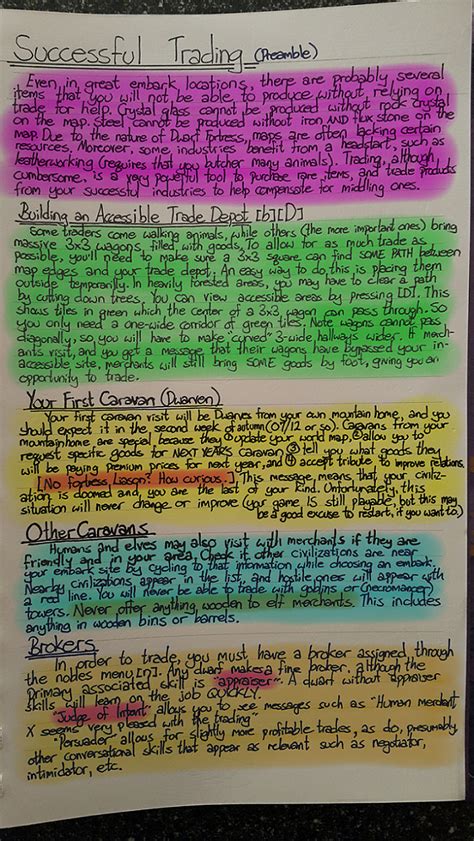 Successful Trading (Preamble)
Even in great embark locations, there are probably several
items that you will not be able to produce without relying on
trade for help. Crystal glass cannot be produced without rock crystal
on the map. Steel cannot be produced without iron AND flux stone on the
map. Due to the nature of Dwarf Fortress, maps are often lacking certain
resources. Moreover, some industries benefit from a headstart, such as
leatherworking (requires that you butcher many animals). Trading, although
cumbersome, is a very powerful tool to purchase rare items, and trade products
from your successful industries to help compensate for middling ones.
Building an Accessible Trade Depot [b][D]
Some traders come walking animals, while others (the more important ones) bring
massive 3x3 wagons, filled with goods. To allow for as much trade as
possible, you'll need to make sure a 3x3 square can find SOME PATH between
map edges and your trade depot. An easy way to do this is placing them
outside temporarily. In heavily forested areas, you may have to clear a path
by cutting down trees. You can view accessible areas by pressing [D]. This
shows tiles in green which the center of a 3x3 wagon can pass through. So
you only need a one-wide corridor of green tiles. Note wagons cannot pass
diagonally, so you will have to make "curved" 3-wide hallways wider. If merch-
ants visit, and you get a message that their wagons have bypassed your in-
accessible site, merchants will still bring SOME goods by foot, giving you an
opportunity to trade.
Your First Caravan (Dwarven)
Your first caravan visit will be Dwarves from your own mountain home, and you
should expect it in the second week of autumn (07/12 or so). Caravans from your
mountainhome are special because they ① update your world map, ② allow you to
request specific goods for NEXT YEAR'S caravan ③ tell you what goods they
will be paying premium prices for next year, and ④ accept tribute to improve relations.
[No Fortress Liason? How curious..] This message means that your civiliz-
ation is doomed and, you are the last of your kind. Unfortunately, this
situation will never change or improve (your game IS still playable, but this may
be a good excuse to restart, if you want to.)
Other Caravans
Humans and elves may also visit with merchants if they are
friendly and in your area. Check if other civilizations are near
your embark site by cycling to that information while choosing an embark.
Nearby civilizations appear in the list, and hostile ones will appear with
a red line. You will never be able to trade with goblins or (necromancer)
towers. Never offer anything wooden to elf merchants. This includes
anything in wooden bins or barrels.
Brokers
In order to trade, you must have a broker assigned, through
the nobles menu [n]. Any dwarf makes a fine broker, although the
primary associated skill is "appraiser". A dwarf without appraiser
skills will learn on the job QUICKLY.
"Judge of Intent" allows you to see messages such as "Human merchant
X seems very pleased with the trading"
"Persuader" allows for slightly more profitable trades, as do, presumably,
other conversational skills that appear as relevant such as negotiator,
intimidator, etc.